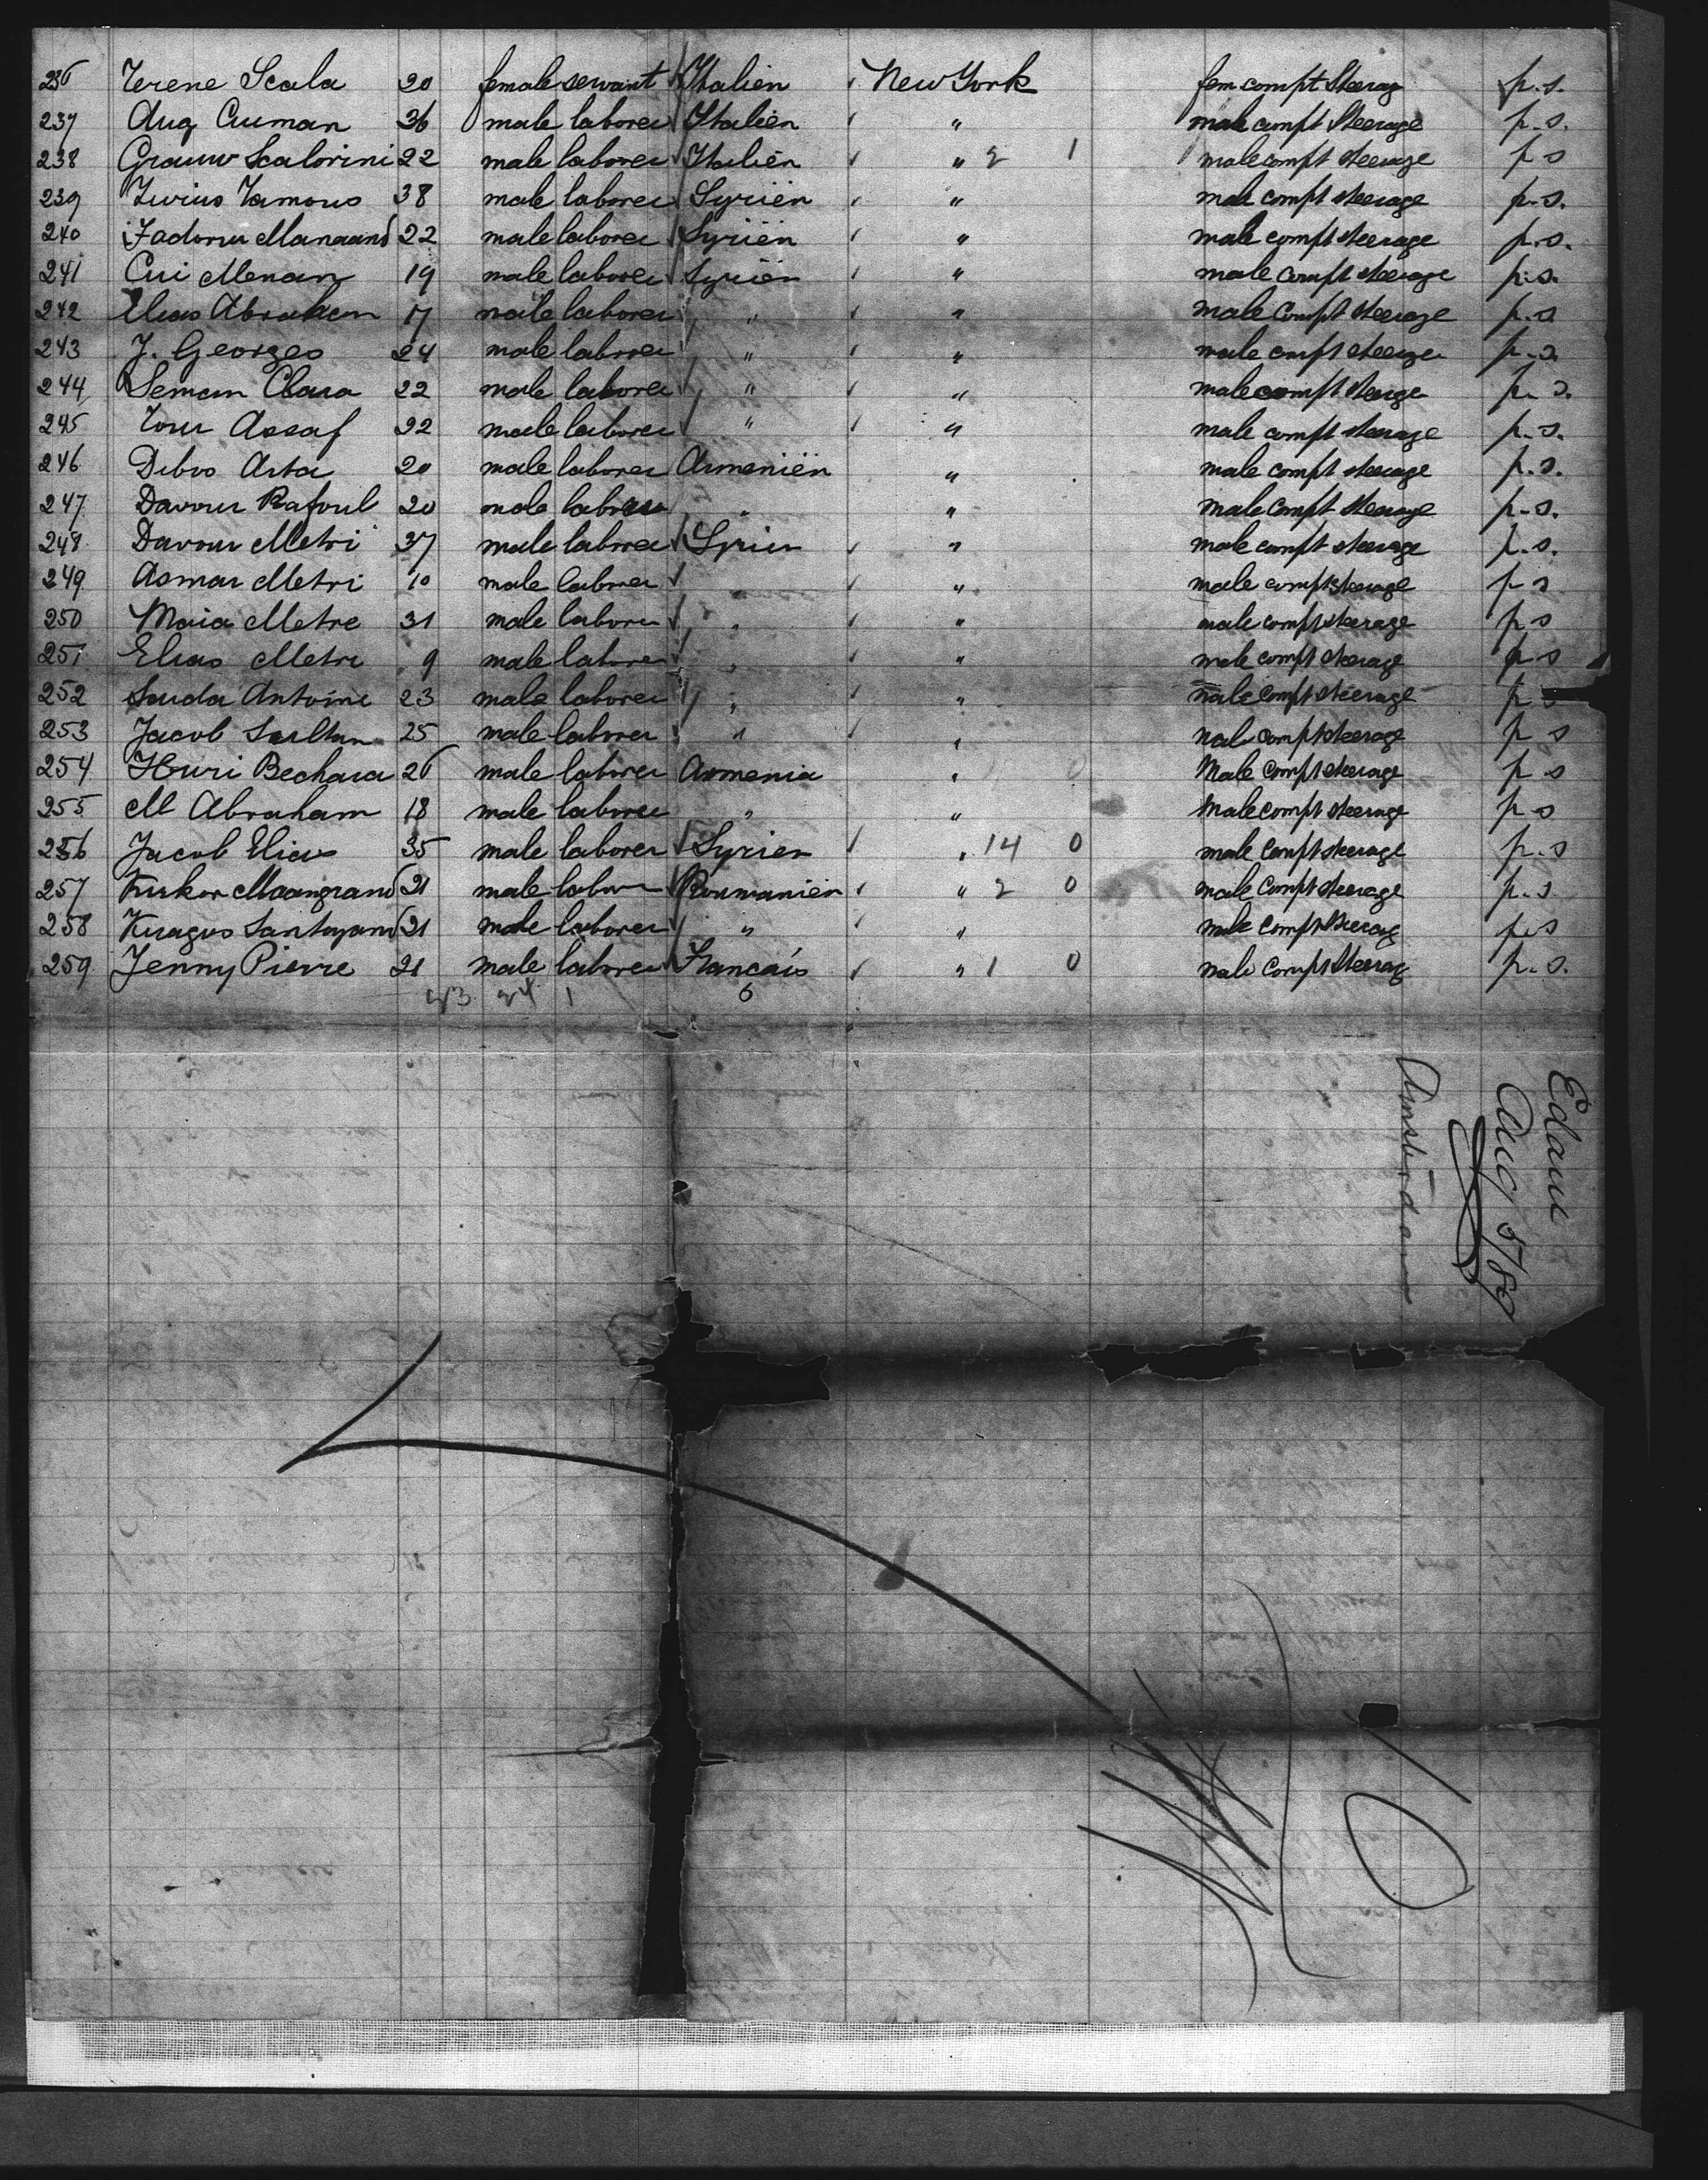 236 Terene Scala 20 female servant Italien New York fem compt Steerag p.s.
237 Aug Cuman 36 male laborer Italien " male compt Steerage p.s.
238 Scalorini 22 male laborer Italien " 2 1 male compt steerage p s
239 38 male laborer Syriën " male compt steerage p.s.
240 22 male laborer Syriën " male compt steerage p.s.
241 Cui Menan 19 male laborer Syriën " male compt steerage p.s.
242 Elias Abraham 17 male laborer " " male compt steerage p.s
243 J. Georges 24 male laborer " " male compt steerage p.s.
244 Seman Clara 22 male laborer " " male compt steerage p.s.
245 Assaf 22 male laborer " " male compt steerage p.s.
246 Dibos Arta 20 male laborer Armeniën " male compt steerage p.s.
247 Davour Rafoul 20 male laborer " " male compt steerage p.s.
248 Davour Metri 37 male laborer Syrien " male compt steerage p.s.
249 Asmar Metri 10 male laborer " male compt steerage p s
250 Maia Metre 31 male laborer " " male compt steerage p s
251 Elias Metri 9 male laborer " " male compt steerage p s
252 Sauda Antoine 23 male laborer " " male compt steerage p s
253 Jacob Sultan 25 male laborer " " male compt steerage p s
254 Houri Bechara 26 male laborer Armenia " 0 Male compt steerage p s
255 M Abraham 18 male laborer " " Male compt steerage p s
256 Jacob Elias 35 male laborer Syrien " 14 0 male compt steerage p.s
257 21 male laborer Roumanien " 2 0 male compt steerage p.s
258 21 male laborer " " male compt Steerag p.s
259 Jenny Pierre 21 male laborer Francais " 1 0 male compt Steerag p.s.
23 24 1 6
Edam
Aug 5/89
Amsterdam